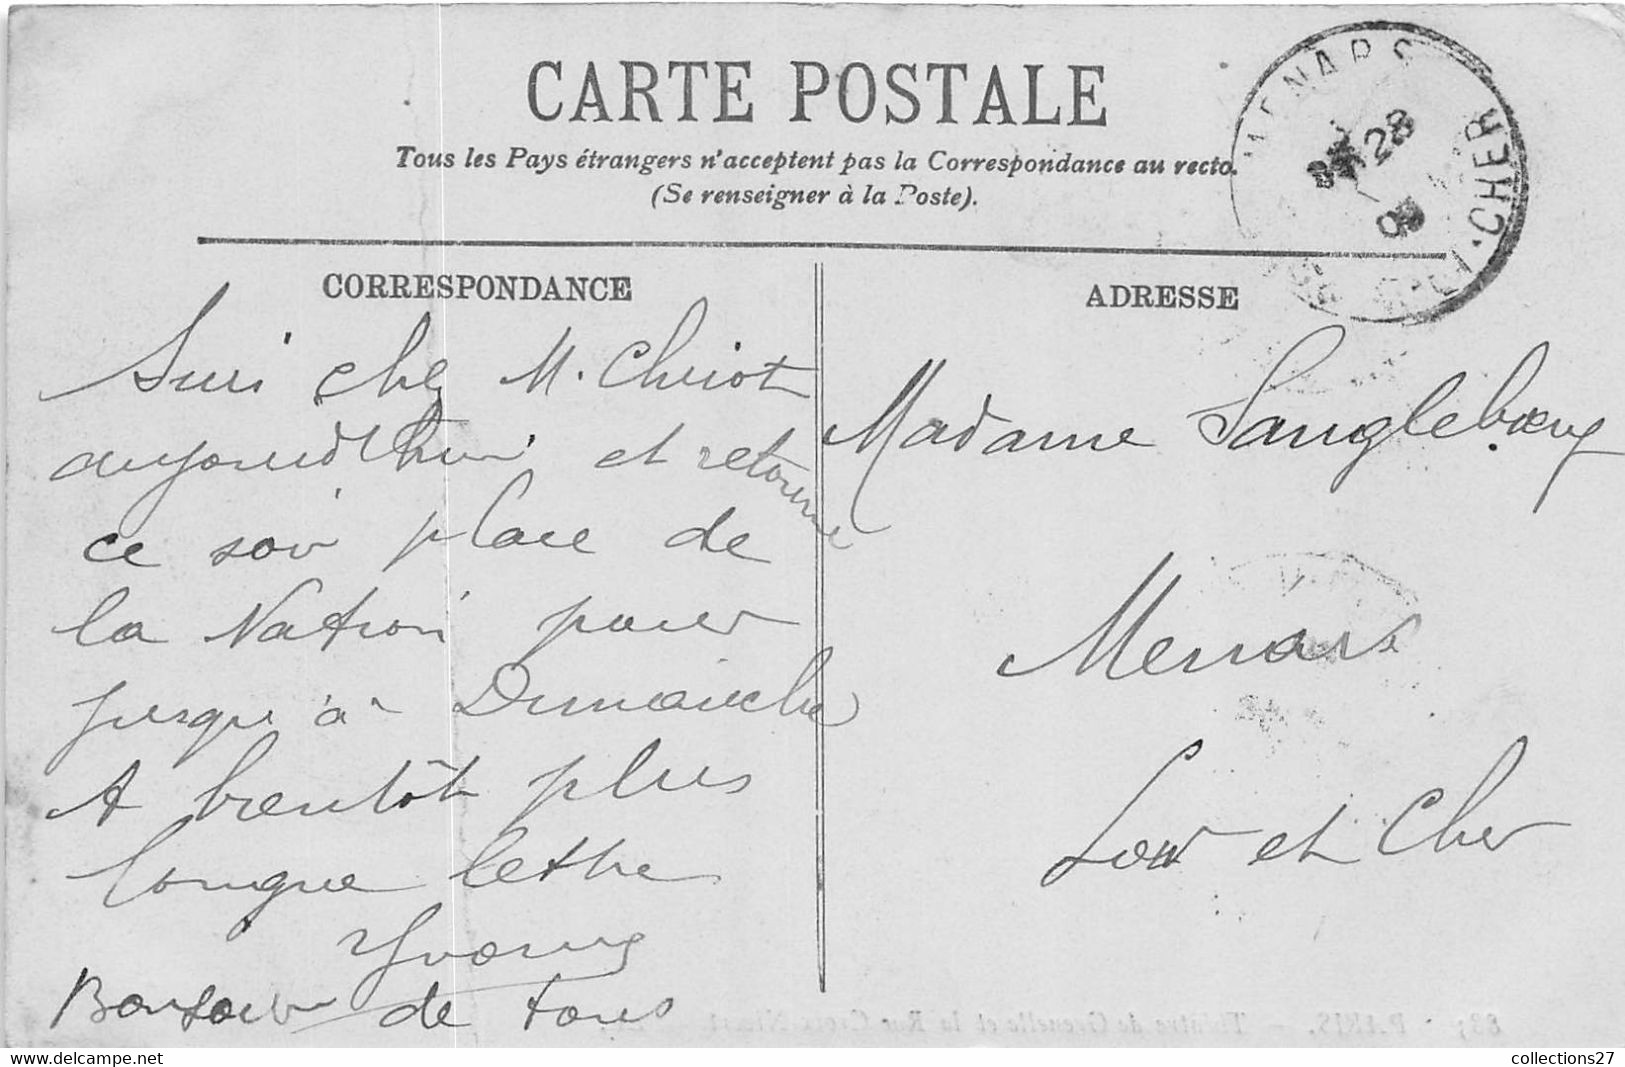 CARTE POSTALE
Tous les Pays étrangers n'acceptent pas la Correspondance au recto.
(Se renseigner à la Poste).
MENARS
28
09
CHER
CORRESPONDANCE
Suis chez M. Chriot
aujourd'hui et retourne
ce soir place de
la Nation pour
jusqu'à Dimanche
A bientôt plus
longue lettre
Yvonne
Bonsoir de tous
ADRESSE
Madame Sanglebœuf
Menars
Loir et Cher
PARIS. - Théâtre de Grenelle et la Rue Croix-Nivert
collections27